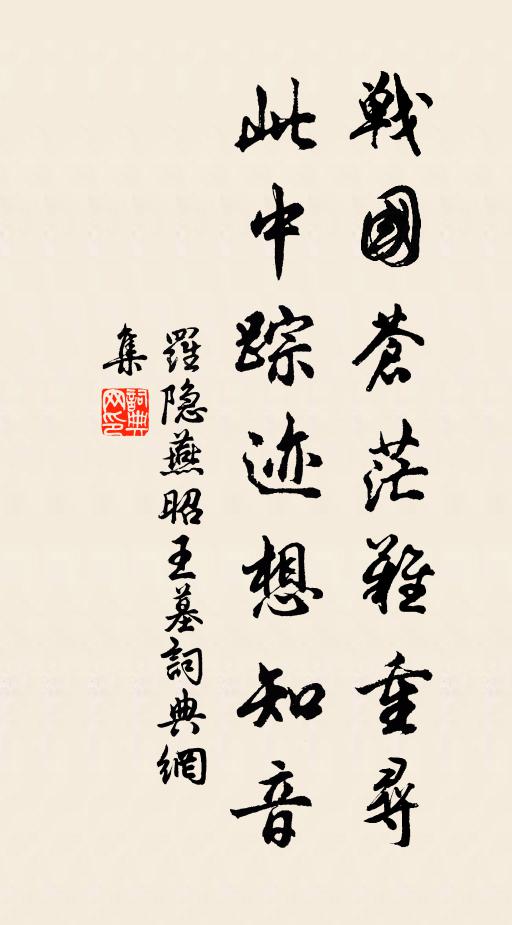 戦國蒼茫難重尋
此中踪迹想知音
羅隐燕昭王墓詞典網
集
詞典网印